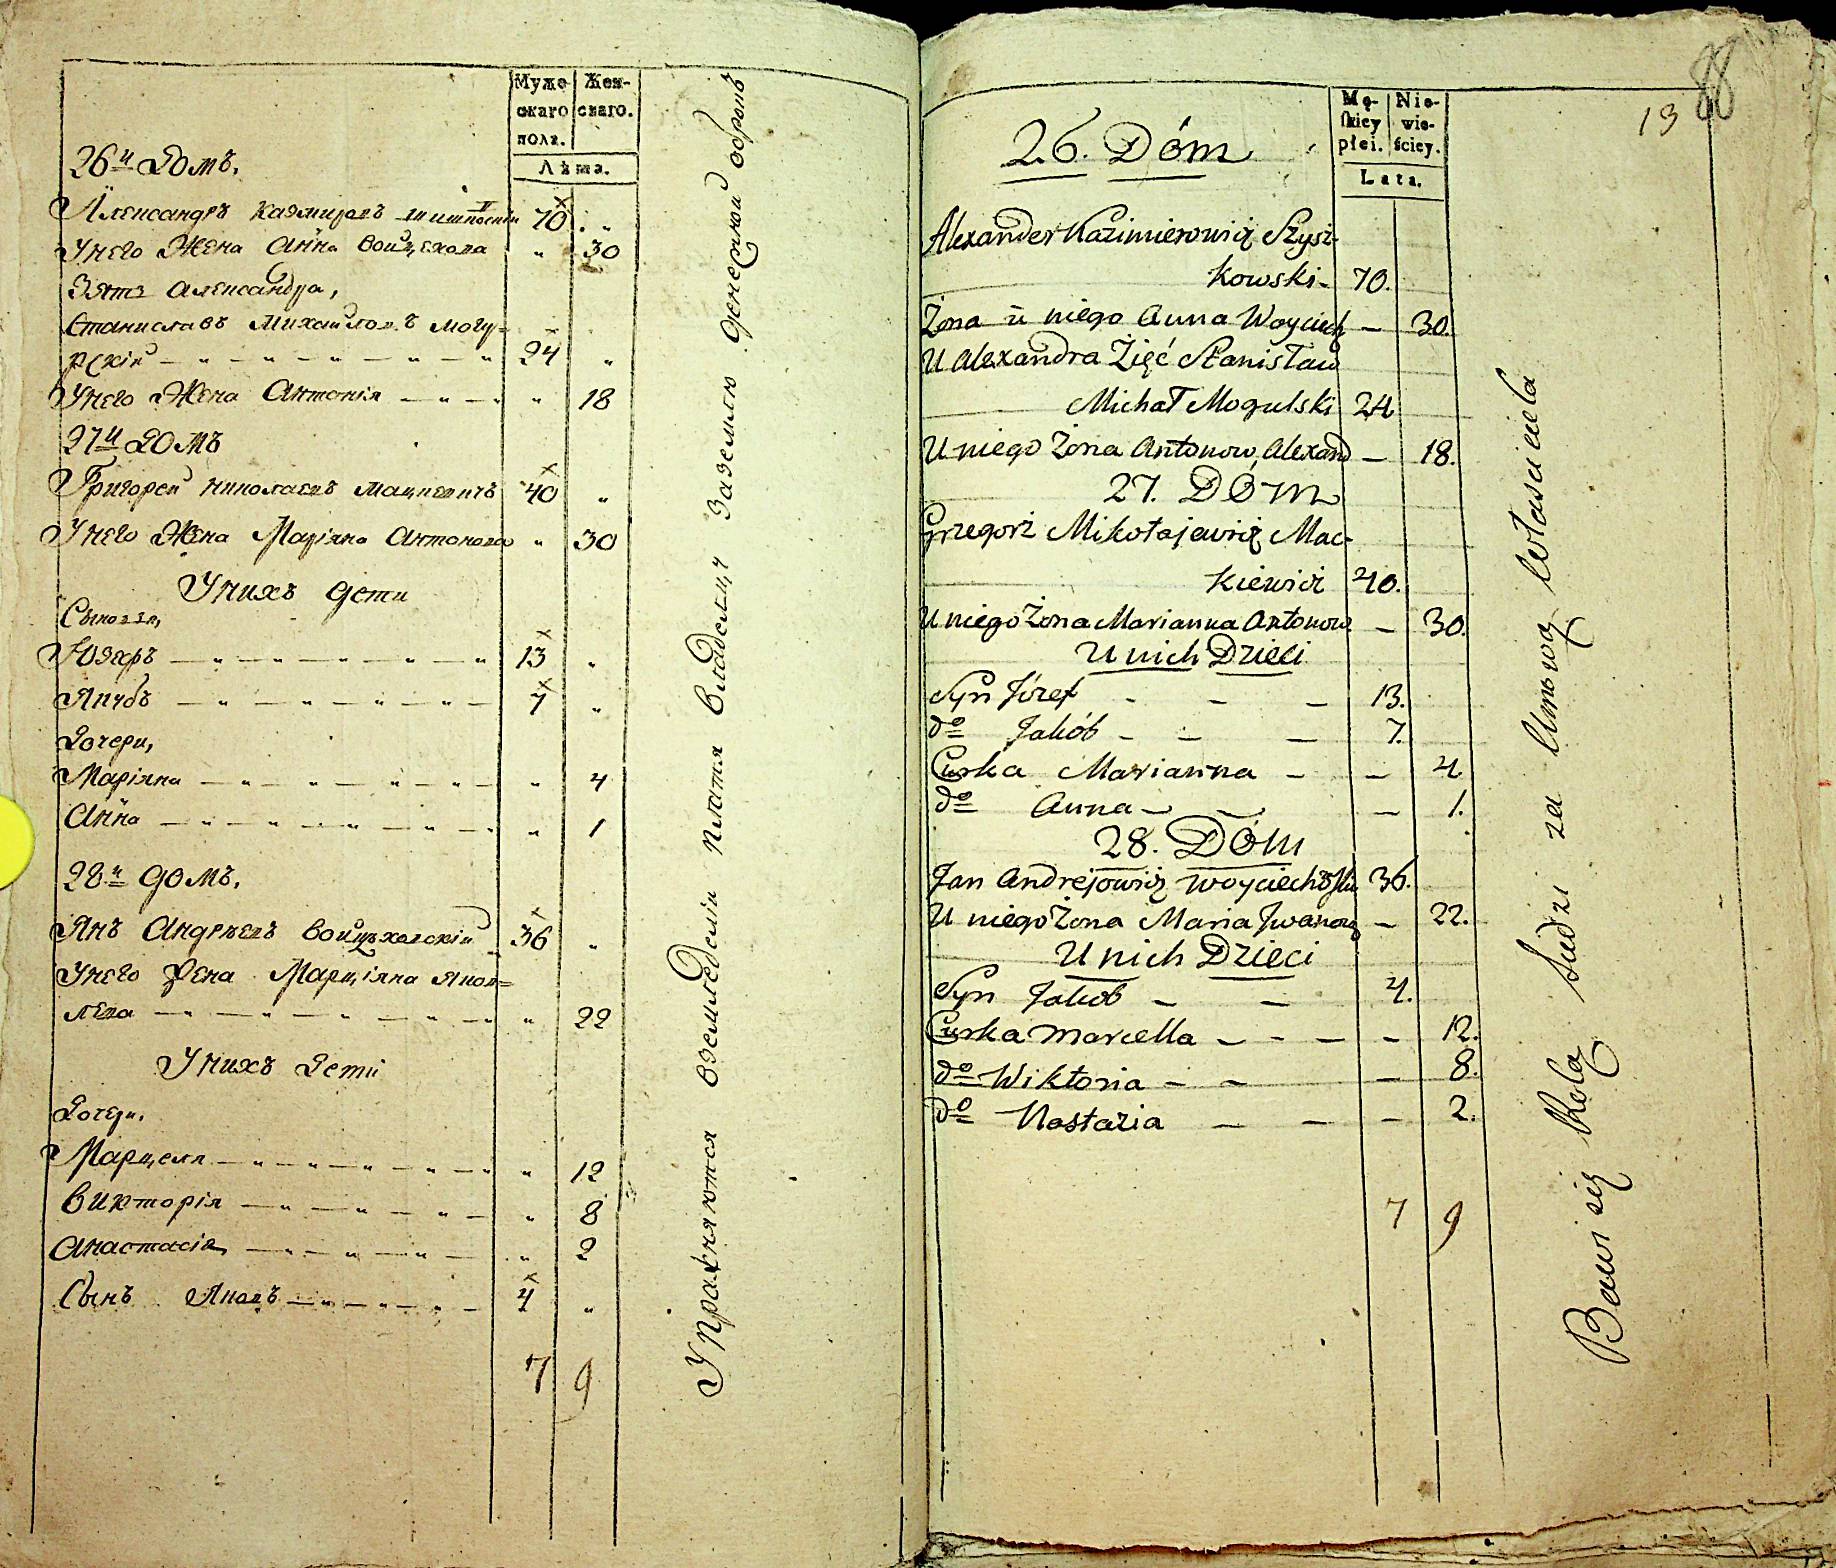 Муже-
скаго
пола.
Жен-
скаго.
Лѣта.
26й Домъ,
Александръ Казмировъ Шишковскій 70 „
У него Жена Анна Войцехова „ 30
Зять Александра,
Станиславъ Михайловъ Могу=
рскій — „ — „ — „ — „ — „ 24 „
У него Жена Антонія — „ — „ „ 18
27й Домъ
Григорей Николаевъ Мацкевичъ 40 „
У него Жена Маріяна Антонова „ 30
У нихъ дети
Сыновья,
Юзефъ — „ — „ — „ — „ — „ 13 „
Якубъ — „ — „ — „ — „ — 7 „
Дочери,
Маріяна — „ — „ — „ — „ — „ 4
Анна — „ — „ — „ — „ — „ 1
28й домъ,
Янъ Андреевъ Войцѣховскій 36 „
У него Жена Марціяна Яков=
лева — „ — „ — „ — „ — „ 22
У нихъ Дети
Дочери,
Марцеля — „ — „ — „ — „ „ 12
Викторія — „ — „ — „ — „ 8
Анастасія — „ — „ — „ — „ 2
Сынъ Яковъ — „ — „ — „ — 4 „
7 9
Упражняются въ земледелии платя владельцу за землю денежной оброкъ
88
13
Mę-
skiey
płci.
Nie-
wie-
ściey.
Lata.
26. Dóm
Alexander Kazimierowicz Szysz-
kowski - 70.
Żona u niego Anna Woyciech — 30.
U Alexandra Zięć Stanisław
Michał Mogulski 24
U niego Żona Antonow Alexand — 18.
27. Dóm
Grzegorz Mikołajewicz Mac-
kiewicz 40.
U niego Żona Marianna Antonow — 30.
U nich Dzieci
Syn Józef - - — 13.
do Jakób - — — 7.
Curka Marianna — — 4
do Anna — — — 1.
28. Dóm
Jan Andrejowicz Woyciechowski 36.
U niego Żona Maria Iwanow — 22.
U nich Dzieci
Syn Jakob — — 4.
Curka Marcella — - — - 12.
do Wiktoria — — — 8.
do Nastazia — — — 2.
7 9
Bawi się Rolą ludzi za Umową właściciela